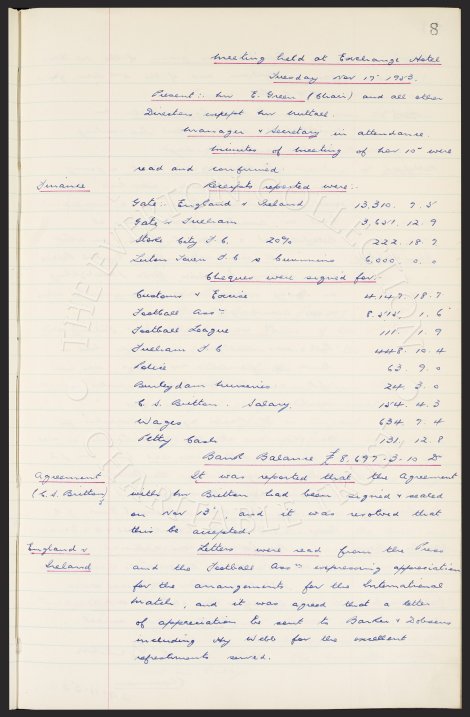 8
Meeting held at Exchange Hotel
Tuesday Nov 17th 1953.
Present:. Mr E. Green (Chair) and all other
Directors except Mr Nuttall.
Manager & Secretary in attendance.
Minutes of meeting of Nov 10th were
read and confirmed.
Finance Receipts reported were:-
Gate:. England v Ireland 13,310. 7. 5
Gate v Fulham 3,651. 12. 9
Stoke City F.C. 20% 222. 18. 7
Luton Town F.C. s Cummins 6,000. 0. 0
Cheques were signed for:
Customs & Excise 4147. 18. 7
Football Assn 8,515. 1. 6
Football League 111. 1. 9
Fulham F.C 448. 10. 4
Police 63. 9. 0
Burleydam Nurseries 24. 3. 0
C. S. Britton. Salary. 154. 4. 3
Wages 634. 7. 4
Petty Cash 131. 12. 8
Bank Balance £8,697-3-10 D
Agreement It was reported that the Agreement
(C.S. Britton) with Mr Britton had been signed & sealed
on Nov 13th and it was resolved that
this be accepted.
England v Letters were read from the Press
Ireland and the Football Assn expressing appreciation
for the arrangements for the International
match, and it was agreed that a letter
of appreciation be sent to Barker & Dobsons
including Hy Webb for the excellent
refreshments served.
THE EVERTON COLLECTION
CHARITABLE TRUST